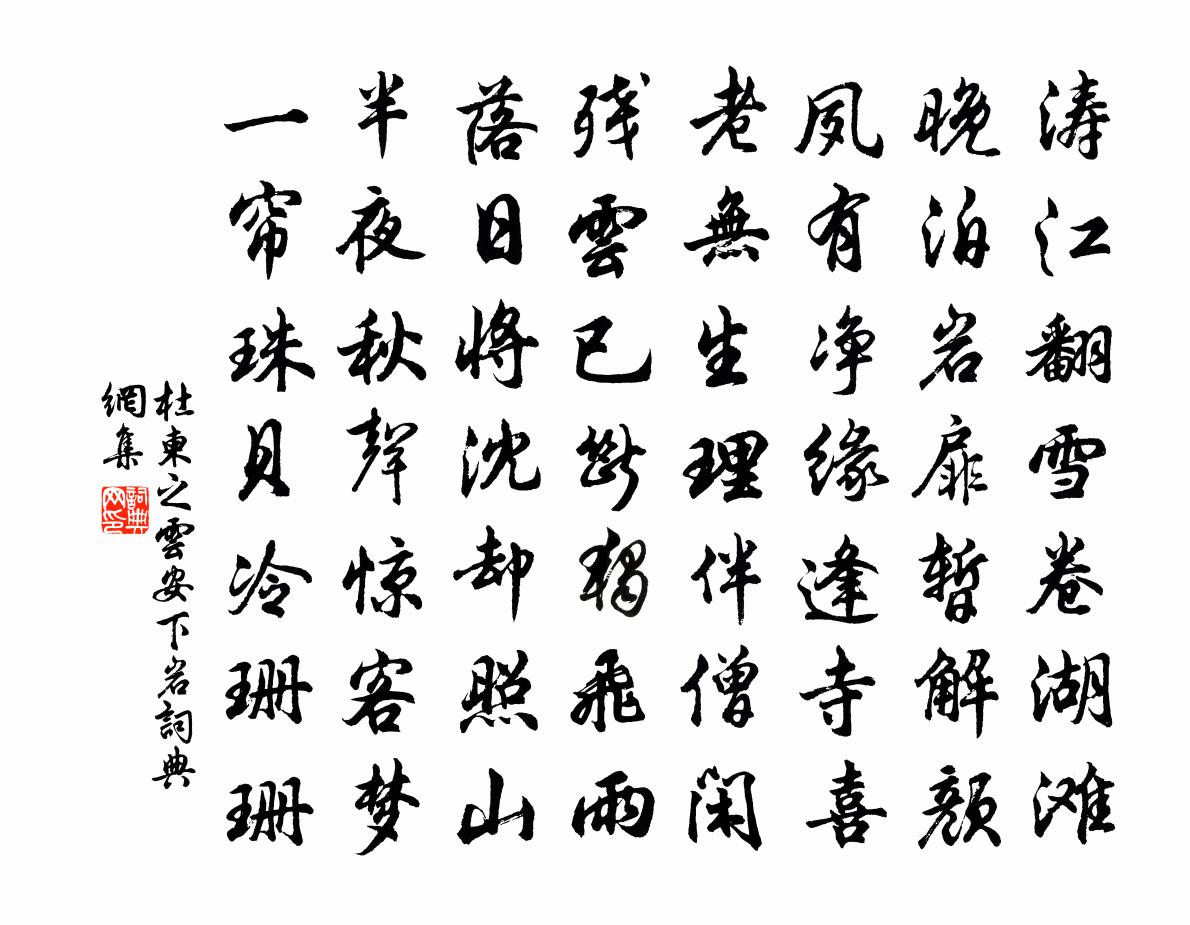 涛江翻雪卷湖滩
晚泊岩扉暂解颜
夙有净缘逢寺喜
老無生理伴僧闲
残雲已断獨飛雨
落日将沈却照山
半夜秋聲惊客梦
一帘珠貝冷珊珊
杜東之雲安下岩詞典
網集
詞典网印